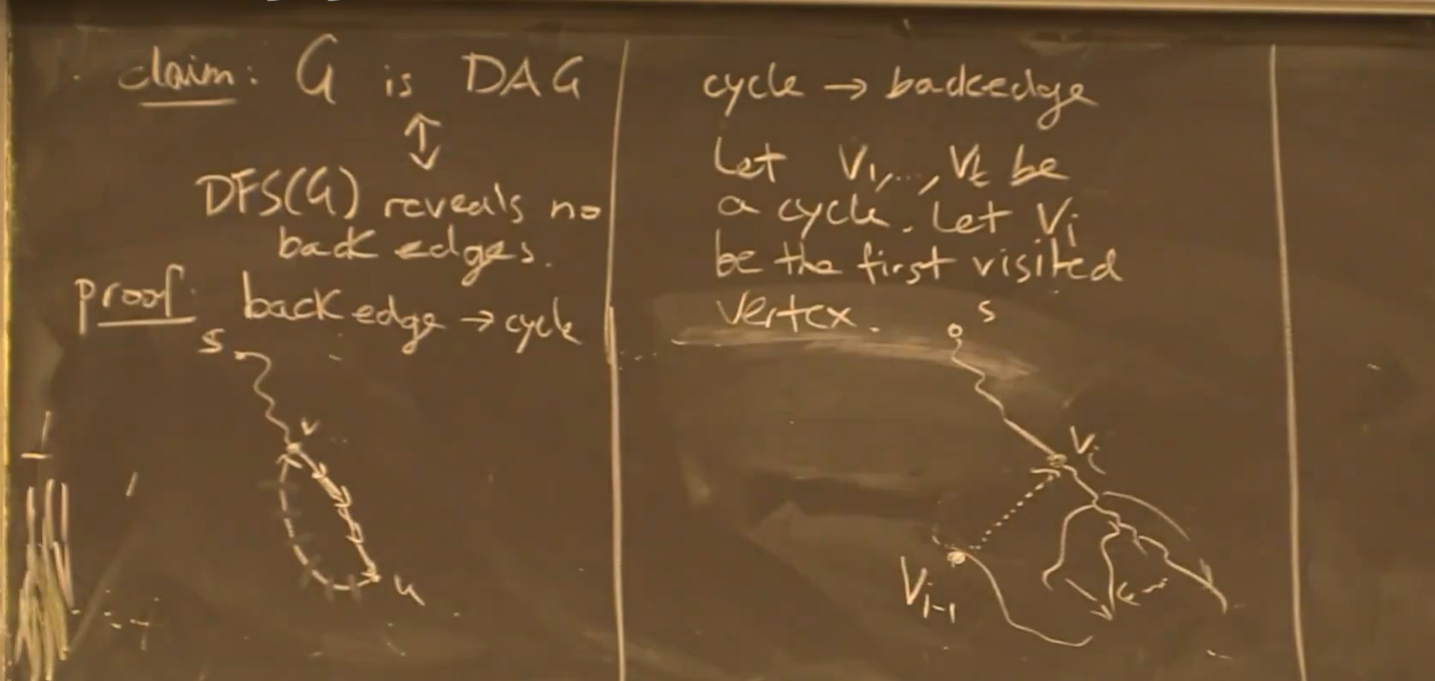 claim: G is DAG
↕
DFS(G) reveals no
back edges.
proof: back edge → cycle
s
v
u
cycle → backedge
Let V1,..., Vt be
a cycle. Let Vi
be the first visited
vertex.
s
Vi
Vi-1